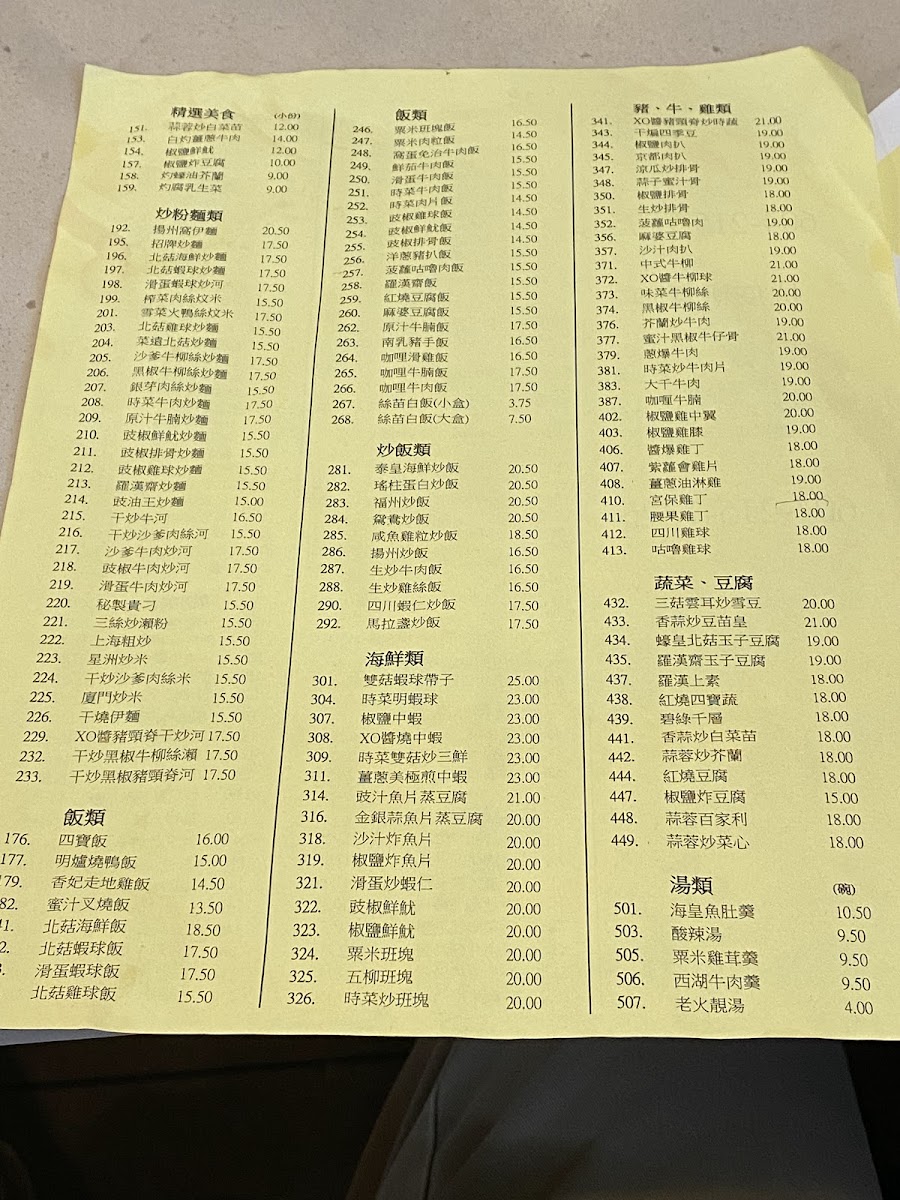 精選美食 (小份)
151. 蒜蓉炒白菜苗 12.00
153. 白灼薑蔥牛肉 14.00
154. 椒鹽鮮魷 12.00
157. 椒鹽炸豆腐 10.00
158. 灼蠔油芥蘭 9.00
159. 灼腐乳生菜 9.00
炒粉麵類
192. 揚州窩伊麵 20.50
195. 招牌炒麵 17.50
196. 北菇海鮮炒麵 17.50
197. 北菇蝦球炒麵 17.50
198. 滑蛋蝦球炒河 17.50
199. 榨菜肉絲炆米 15.50
201. 雪菜火鴨絲炆米 17.50
203. 北菇雞球炒麵 15.50
204. 菜遠北菇炒麵 15.50
205. 沙爹牛柳絲炒麵 17.50
206. 黑椒牛柳絲炒麵 17.50
207. 銀芽肉絲炒麵 15.50
208. 時菜牛肉炒麵 17.50
209. 原汁牛腩炒麵 17.50
210. 豉椒鮮魷炒麵 15.50
211. 豉椒排骨炒麵 15.50
212. 豉椒雞球炒麵 15.50
213. 羅漢齋炒麵 15.50
214. 豉油王炒麵 15.00
215. 干炒牛河 16.50
216. 干炒沙爹肉絲河 15.50
217. 沙爹牛肉炒河 17.50
218. 豉椒牛肉炒河 17.50
219. 滑蛋牛肉炒河 17.50
220. 秘製貴刁 15.50
221. 三絲炒瀨粉 15.50
222. 上海粗炒 15.50
223. 星洲炒米 15.50
224. 干炒沙爹肉絲米 15.50
225. 廈門炒米 15.50
226. 干燒伊麵 15.50
229. XO醬豬頸脊干炒河 17.50
232. 干炒黑椒牛柳絲瀨 17.50
233. 干炒黑椒豬頸脊河 17.50
飯類
176. 四寶飯 16.00
177. 明爐燒鴨飯 15.00
79. 香妃走地雞飯 14.50
82. 蜜汁叉燒飯 13.50
41. 北菇海鮮飯 18.50
2. 北菇蝦球飯 17.50
滑蛋蝦球飯 17.50
北菇雞球飯 15.50
飯類
246. 粟米班塊飯 16.50
247. 粟米肉粒飯 14.50
248. 窩蛋免治牛肉飯 16.50
249. 鮮茄牛肉飯 15.50
250. 滑蛋牛肉飯 15.50
251. 時菜牛肉飯 15.50
252. 時菜肉片飯 14.50
253. 豉椒雞球飯 14.50
254. 豉椒鮮魷飯 14.50
255. 豉椒排骨飯 14.50
256. 洋蔥豬扒飯 15.50
257. 菠蘿咕嚕肉飯 15.50
258. 羅漢齋飯 15.50
259. 紅燒豆腐飯 15.50
260. 麻婆豆腐飯 15.50
262. 原汁牛腩飯 17.50
263. 南乳豬手飯 16.50
264. 咖哩滑雞飯 16.50
265. 咖哩牛腩飯 17.50
266. 咖哩牛肉飯 17.50
267. 絲苗白飯(小盒) 3.75
268. 絲苗白飯(大盒) 7.50
炒飯類
281. 泰皇海鮮炒飯 20.50
282. 瑤柱蛋白炒飯 20.50
283. 福州炒飯 20.50
284. 鴛鴦炒飯 20.50
285. 咸魚雞粒炒飯 18.50
286. 揚州炒飯 16.50
287. 生炒牛肉飯 16.50
288. 生炒雞絲飯 16.50
290. 四川蝦仁炒飯 17.50
292. 馬拉盞炒飯 17.50
海鮮類
301. 雙菇蝦球帶子 25.00
304. 時菜明蝦球 23.00
307. 椒鹽中蝦 23.00
308. XO醬燒中蝦 23.00
309. 時菜雙菇炒三鮮 23.00
311. 薑蔥美極煎中蝦 23.00
314. 豉汁魚片蒸豆腐 21.00
316. 金銀蒜魚片蒸豆腐 20.00
318. 沙汁炸魚片 20.00
319. 椒鹽炸魚片 20.00
321. 滑蛋炒蝦仁 20.00
322. 豉椒鮮魷 20.00
323. 椒鹽鮮魷 20.00
324. 粟米班塊 20.00
325. 五柳班塊 20.00
326. 時菜炒班塊 20.00
豬、牛、雞類
341. XO醬豬頸脊炒時蔬 21.00
343. 干煸四季豆 19.00
344. 椒鹽肉扒 19.00
345. 京都肉扒 19.00
347. 涼瓜炒排骨 19.00
348. 蒜子蜜汁骨 19.00
350. 椒鹽排骨 18.00
351. 生炒排骨 18.00
352. 菠蘿咕嚕肉 19.00
356. 麻婆豆腐 18.00
357. 沙汁肉扒 19.00
371. 中式牛柳 21.00
372. XO醬牛柳球 21.00
373. 味菜牛柳絲 20.00
374. 黑椒牛柳絲 20.00
376. 芥蘭炒牛肉 19.00
377. 蜜汁黑椒牛仔骨 21.00
379. 蔥爆牛肉 19.00
381. 時菜炒牛肉片 19.00
383. 大千牛肉 19.00
387. 咖喱牛腩 20.00
402. 椒鹽雞中翼 20.00
403. 椒鹽雞膝 19.00
406. 醬爆雞丁 18.00
407. 紫蘿會雞片 18.00
408. 薑蔥油淋雞 21.00
410. 宮保雞丁 18.00
411. 腰果雞丁 18.00
412. 四川雞球 18.00
413. 咕嚕雞球 18.00
蔬菜、豆腐
432. 三菇雲耳炒雪豆 20.00
433. 香蒜炒豆苗皇 21.00
434. 蠔皇北菇玉子豆腐 19.00
435. 羅漢齋玉子豆腐 19.00
437. 羅漢上素 18.00
438. 紅燒四寶蔬 18.00
439. 碧綠千層 18.00
441. 香蒜炒白菜苗 18.00
442. 蒜蓉炒芥蘭 18.00
444. 紅燒豆腐 18.00
447. 椒鹽炸豆腐 15.00
448. 蒜蓉百家利 18.00
449. 蒜蓉炒菜心 18.00
湯類 (碗)
501. 海皇魚肚羹 10.50
503. 酸辣湯 9.50
505. 粟米雞茸羹 9.50
506. 西湖牛肉羹 9.50
507. 老火靚湯 4.00